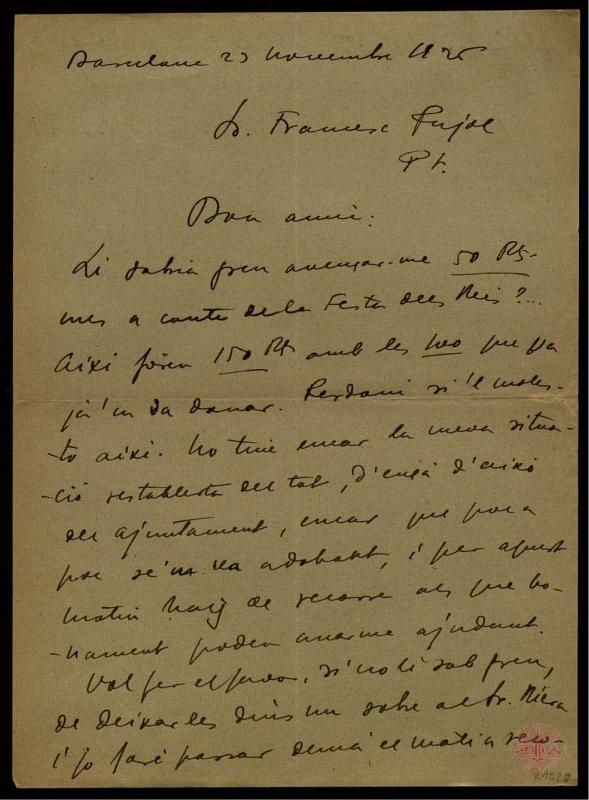 Barcelona 23 novembre 1925
Sr. Francesc Pujol
Pt.
Bon amic:
Li sabria greu avençar-me 50 Pts.
mes a conte de la Festa dels Reis?...
Així fòren 150 Pts amb les 100 que ja
ja'm va donar. Perdoni si'l moles-
-to així. No tinc encar la meva situa-
-ció restablerta del tot, d'ençà d'això
del ajuntament, encar que poc a
poc se'm va adobant, i per aquest
motiu haig de recorre als que bo-
-nament poden anarme ajudant.
Vol fer el favor, si no li sab greu,
de deixarles dins un sobre al Sr. Riera
i jo faré passar demà el matí a reco-